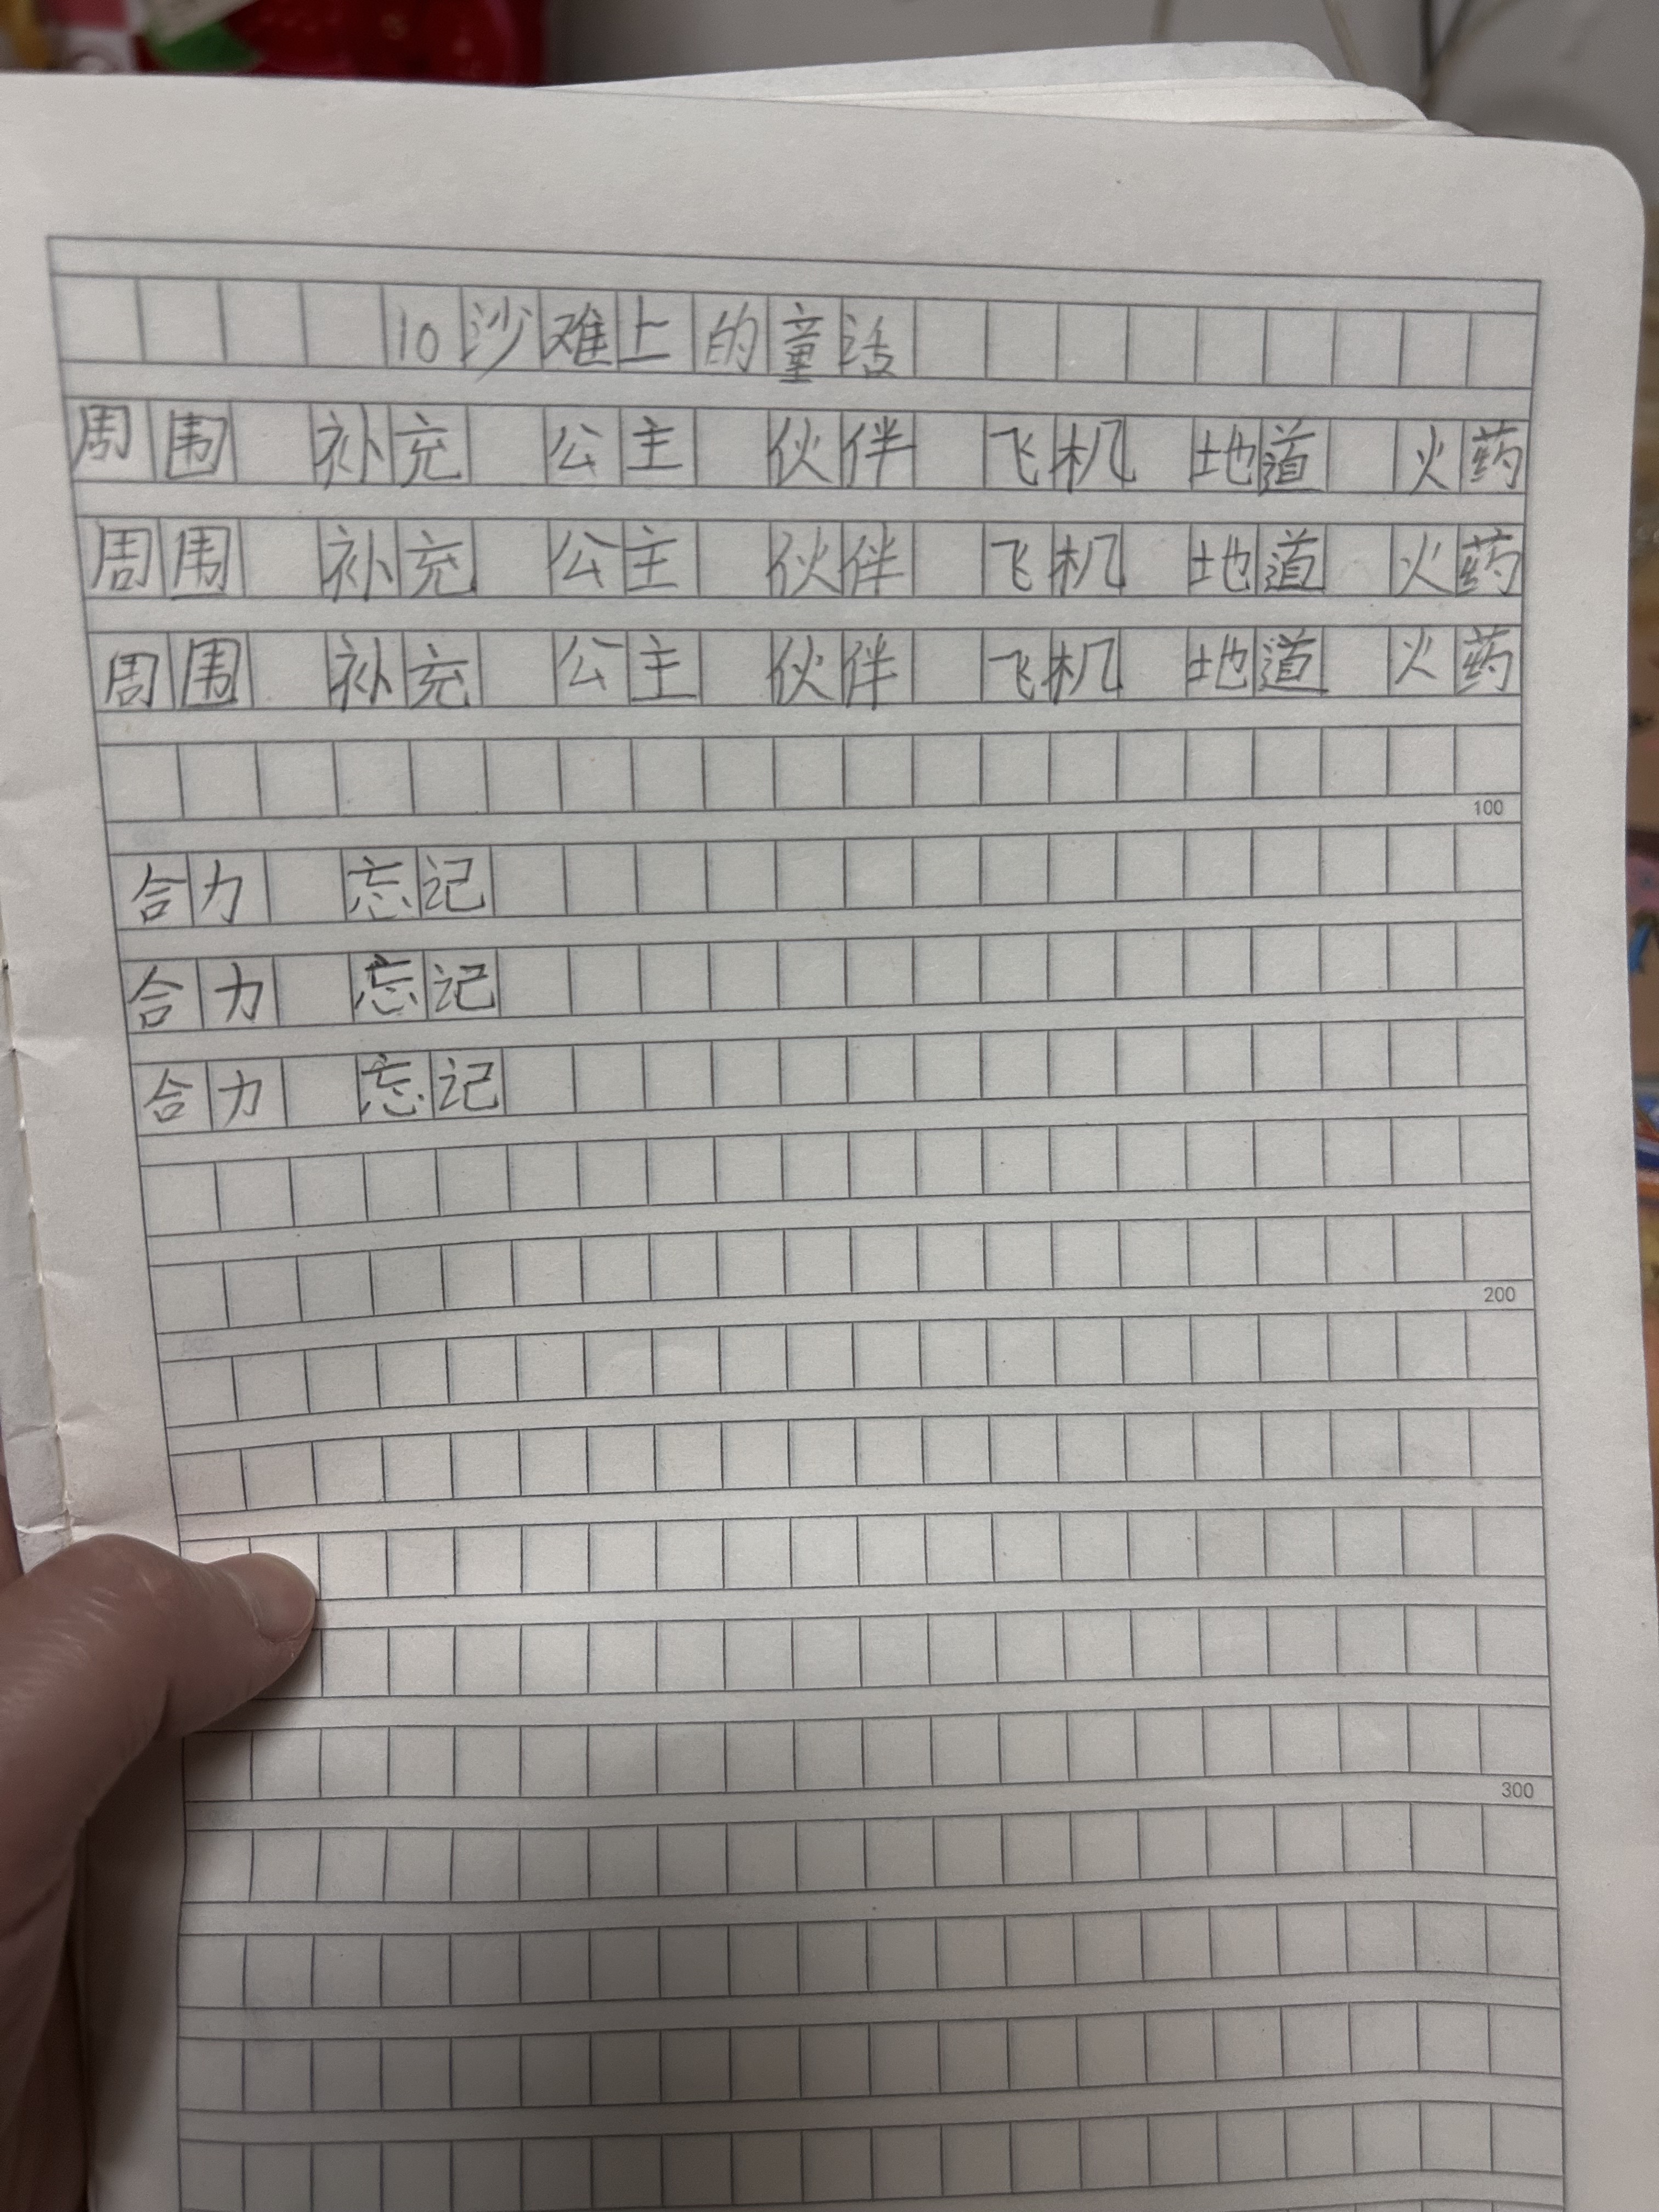 10沙难上的童话
周围 补充 公主 伙伴 飞机 地道 火药
周围 补充 公主 伙伴 飞机 地道 火药
周围 补充 公主 伙伴 飞机 地道 火药
100
合力 忘记
合力 忘记
合力 忘记
200
300